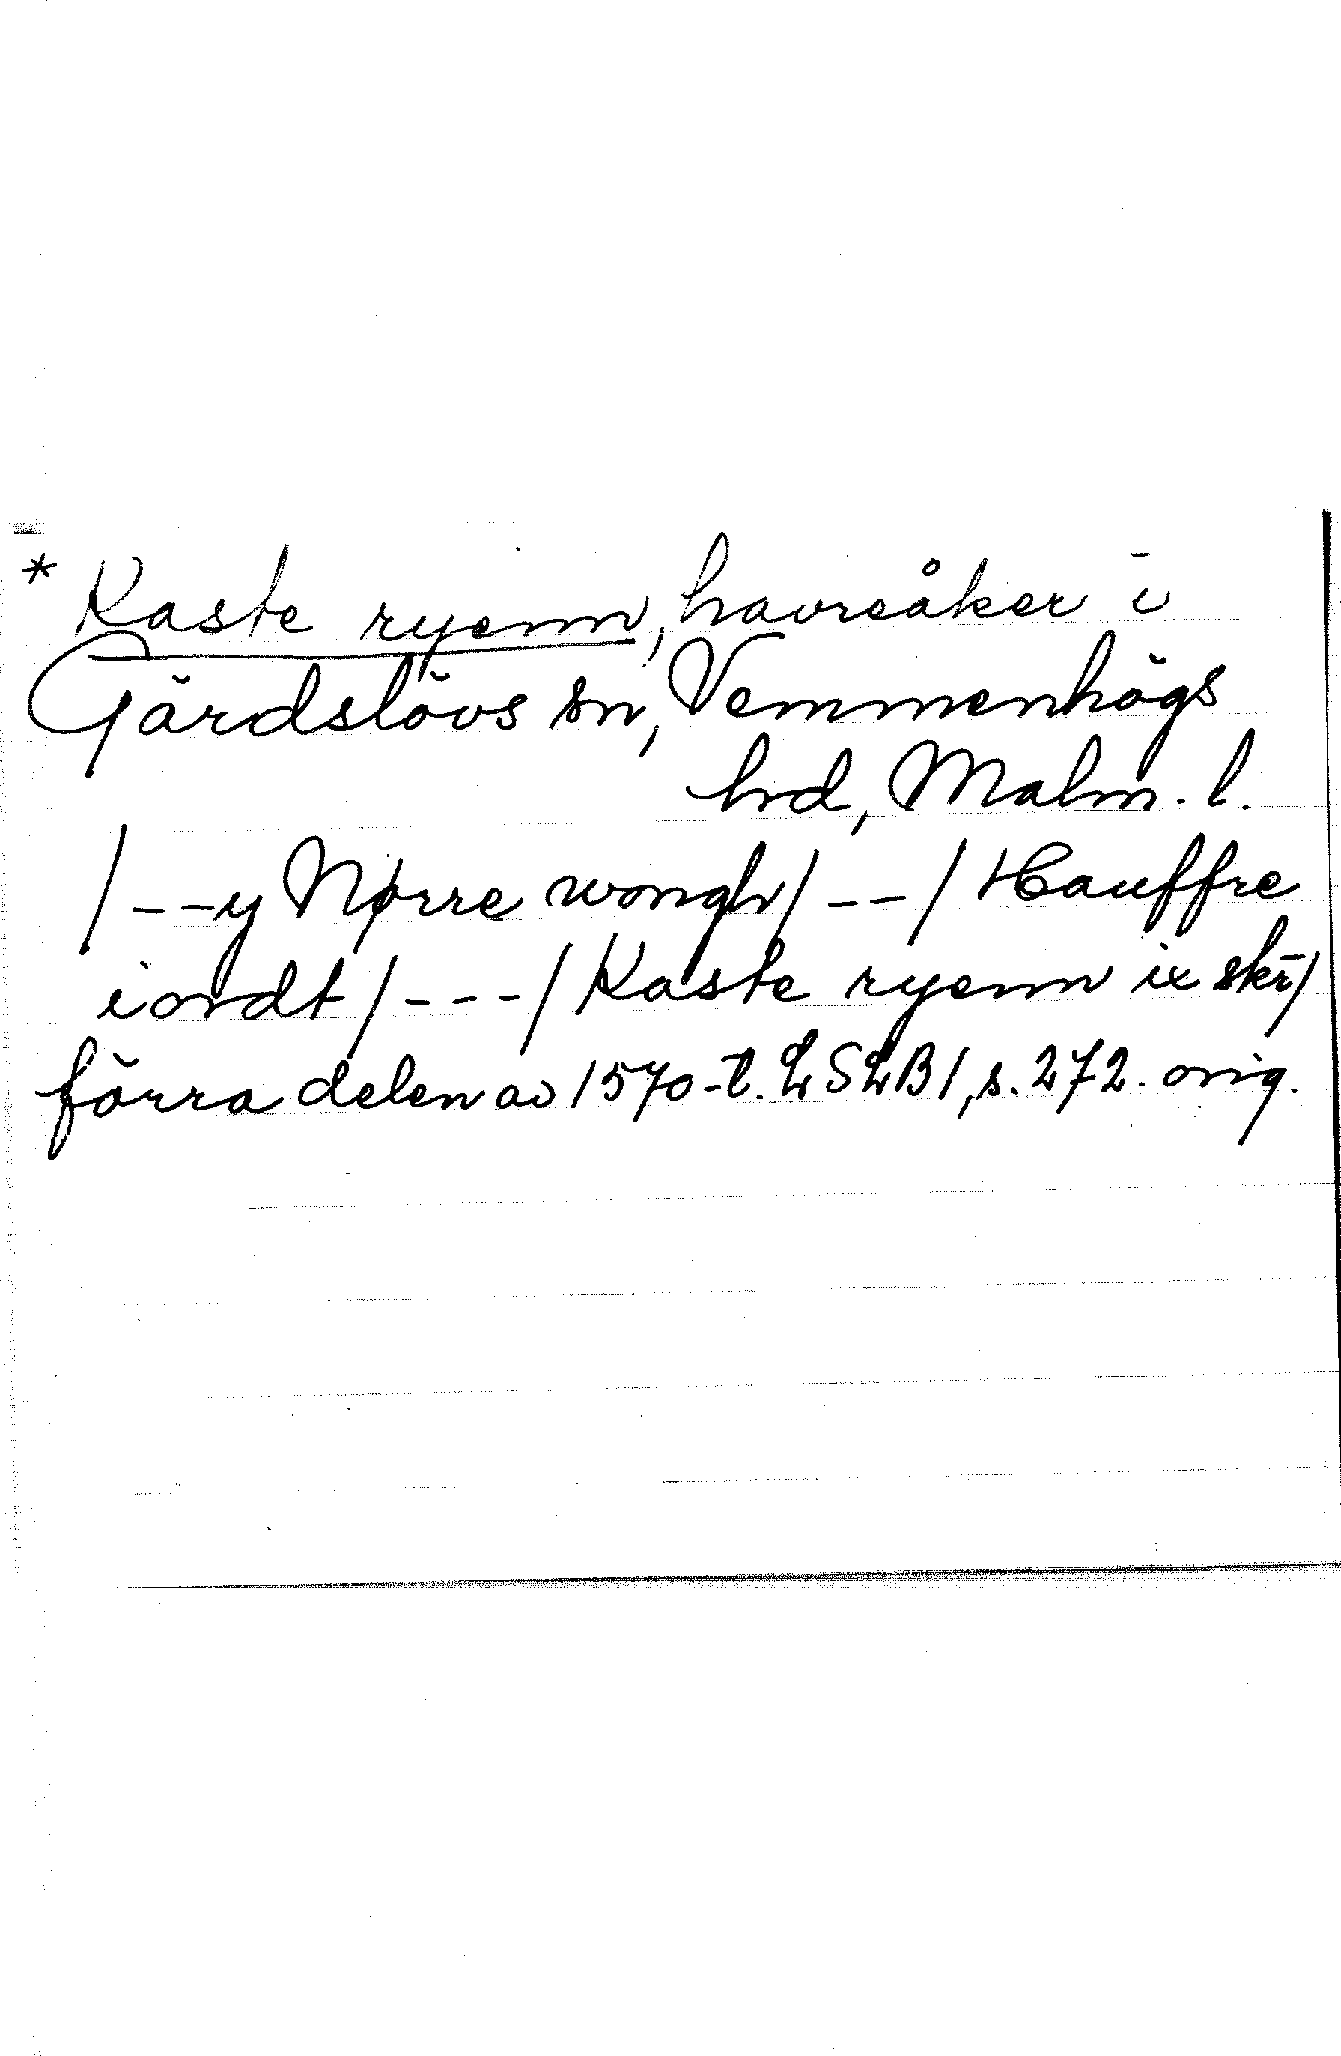 * Kaste ryenn, havreåker i
Gärdslövs sn, Vemmenhögs
hrd, Malm. l.
/--y Nørre wongh/--/Hauffre
iordt/---/Kaste ryenn ix skr/
förra delen av 1570-t. LSLB1, s. 272. orig.